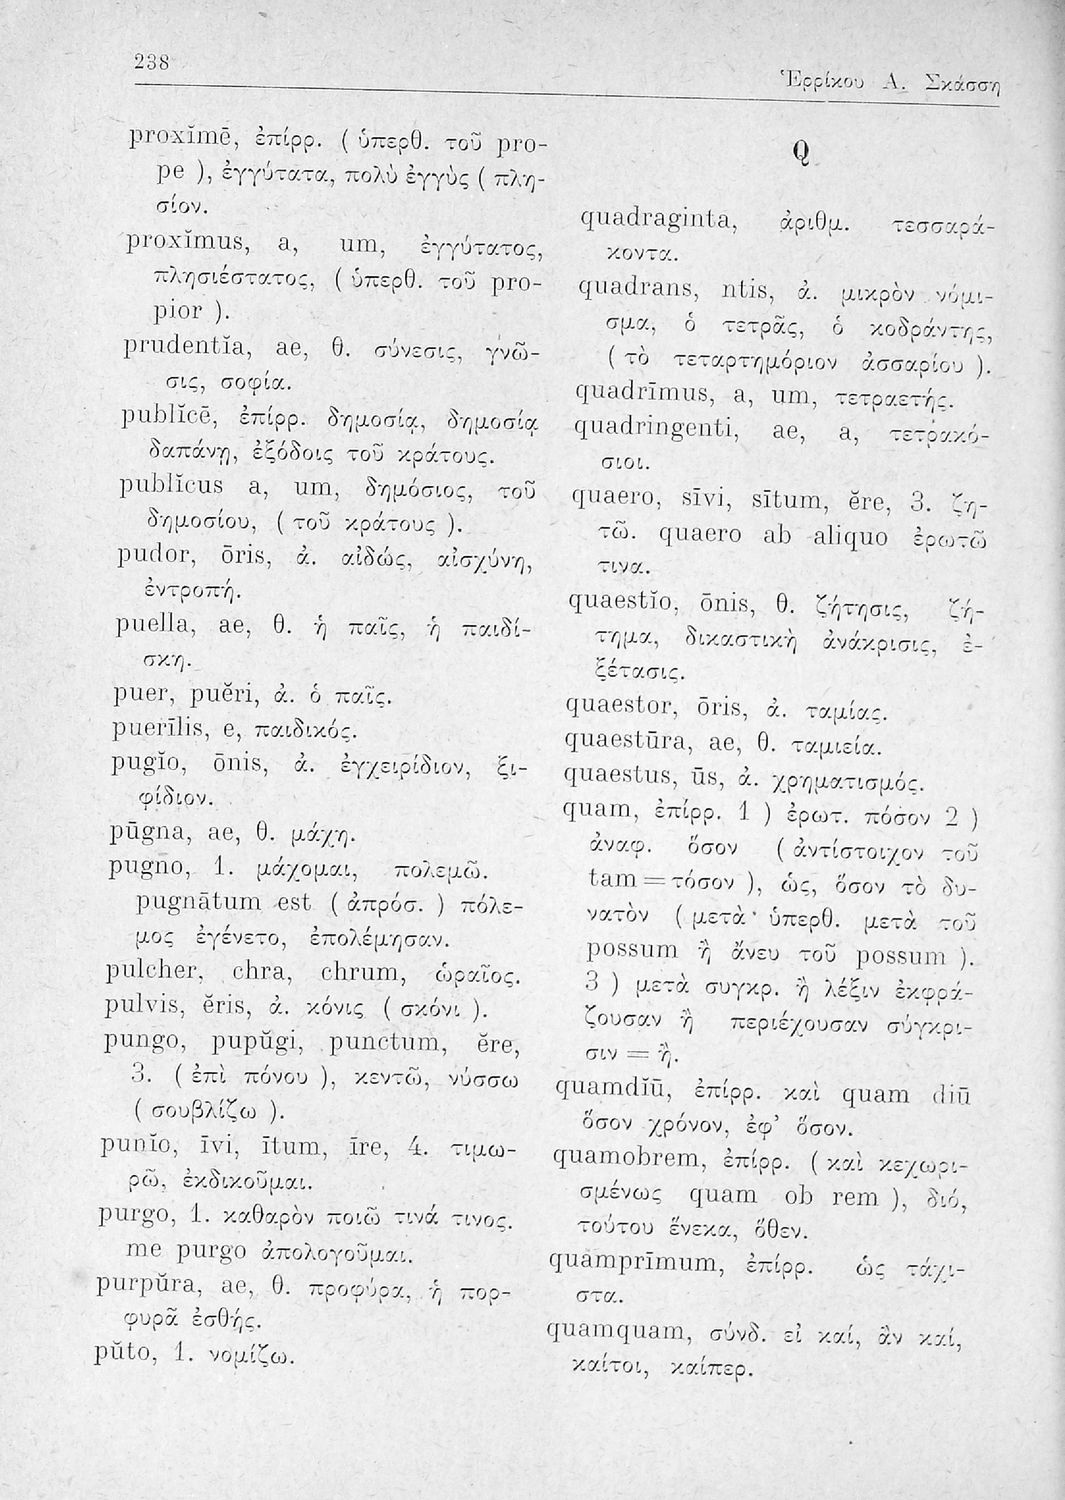 238
Ἑρρίκου Α. Σκάσση
proxĭmē, ἐπίρρ. ( ὑπερθ. τοῦ pro-
pe ), ἐγγύτατα, πολὺ ἐγγὺς ( πλη-
σίον.
proxĭmus, a, um, ἐγγύτατος,
πλησιέστατος, ( ὑπερθ. τοῦ pro-
pior ).
prudentĭa, ae, θ. σύνεσις, γνῶ-
σις, σοφία.
publĭcē, ἐπίρρ. δημοσίᾳ, δημοσίᾳ
δαπάνῃ, ἐξόδοις τοῦ κράτους.
publĭcus a, um, δημόσιος, τοῦ
δημοσίου, ( τοῦ κράτους ).
pudor, ōris, ἀ. αἰδώς, αἰσχύνη,
ἐντροπή.
puella, ae, θ. ἡ παῖς, ἡ παιδί-
σκη.
puer, puĕri, ἀ. ὁ παῖς.
puerīlis, e, παιδικός.
pugĭo, ōnis, ἀ. ἐγχειρίδιον, ξι-
φίδιον.
pūgna, ae, θ. μάχη.
pugno, 1. μάχομαι, πολεμῶ.
pugnātum est ( ἀπρόσ. ) πόλε-
μος ἐγένετο, ἐπολέμησαν.
pulcher, chra, chrum, ὡραῖος.
pulvis, ĕris, ἀ. κόνις ( σκόνι ).
pungo, pupŭgi, punctum, ĕre,
3. ( ἐπὶ πόνου ), κεντῶ, νύσσω
( σουβλίζω ).
punĭo, īvi, ītum, īre, 4. τιμω-
ρῶ, ἐκδικοῦμαι.
purgo, 1. καθαρὸν ποιῶ τινά τινος.
me purgo ἀπολογοῦμαι.
purpŭra, ae, θ. προφύρα, ἡ πορ-
φυρᾶ ἐσθής.
pŭto, 1. νομίζω.
Q
quadraginta, ἀριθμ. τεσσαρά-
κοντα.
quadrans, ntis, ἀ. μικρὸν νόμι-
σμα, ὁ τετρᾶς, ὁ κοδράντης,
( τὸ τεταρτημόριον ἀσσαρίου ).
quadrīmus, a, um, τετραετής.
quadringenti, ae, a, τετρακό-
σιοι.
quaero, sīvi, sītum, ĕre, 3. ζη-
τῶ. quaero ab aliquo ἐρωτῶ
τινα.
quaestĭo, ōnis, θ. ζήτησις, ζή-
τημα, δικαστικὴ ἀνάκρισις, ἐ-
ξέτασις.
quaestor, ōris, ἀ. ταμίας.
quaestūra, ae, θ. ταμιεία.
quaestus, ūs, ἀ. χρηματισμός.
quam, ἐπίρρ. 1 ) ἐρωτ. πόσον 2 )
ἀναφ. ὅσον ( ἀντίστοιχον τοῦ
tam = τόσον ), ὡς, ὅσον τὸ δυ-
νατὸν ( μετὰ ὑπερθ. μετὰ τοῦ
possum ἢ ἄνευ τοῦ possum ).
3 ) μετὰ συγκρ. ἢ λέξιν ἐκφρά-
ζουσαν ἢ περιέχουσαν σύγκρι-
σιν = ἤ.
quamdĭū, ἐπίρρ. καὶ quam diū
ὅσον χρόνον, ἐφ’ ὅσον.
quamobrem, ἐπίρρ. ( καὶ κεχωρι-
σμένως quam ob rem ), διό,
τούτου ἕνεκα, ὅθεν.
quamprīmum, ἐπίρρ. ὡς τάχι-
στα.
quamquam, σύνδ. εἰ καί, ἂν καί,
καίτοι, καίπερ.